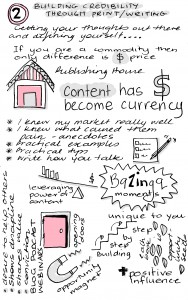 2
BUILDING CREDIBILITY
THROUGH PRINT/WRITING
Getting your thoughts out there
and defining yourself....
If you are a commodity then
only difference is $ price
Publishing House
Content has
become currency
* I knew my market really well
* I knew what caused them
pain - anecdotes
* Practical examples
* Practical tips
* Write how you talk
leveraging power of
content
Bazinga
moments
unique to you
step
by
step
building
shows value
convictions
BLOG
PODCAST
WEBINARS
opportunity
magnet
+positive
Influence